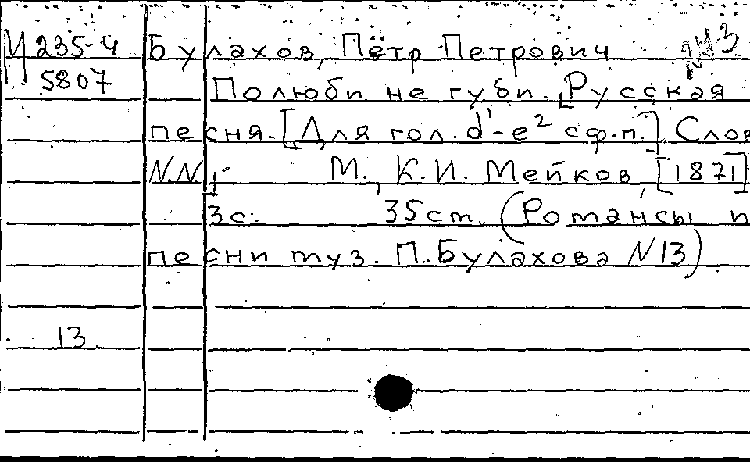 М 235-4 Булахов, Пётр Петрович №3
5807 Полюби не губи. [Русская
песня. [Для гол. d¹-e² с ф.п.] Слов
N.N.
М., К.И. Мейков, [1871]
3с. 35см. (Романсы и
песни муз. П.Булахова №13)
13